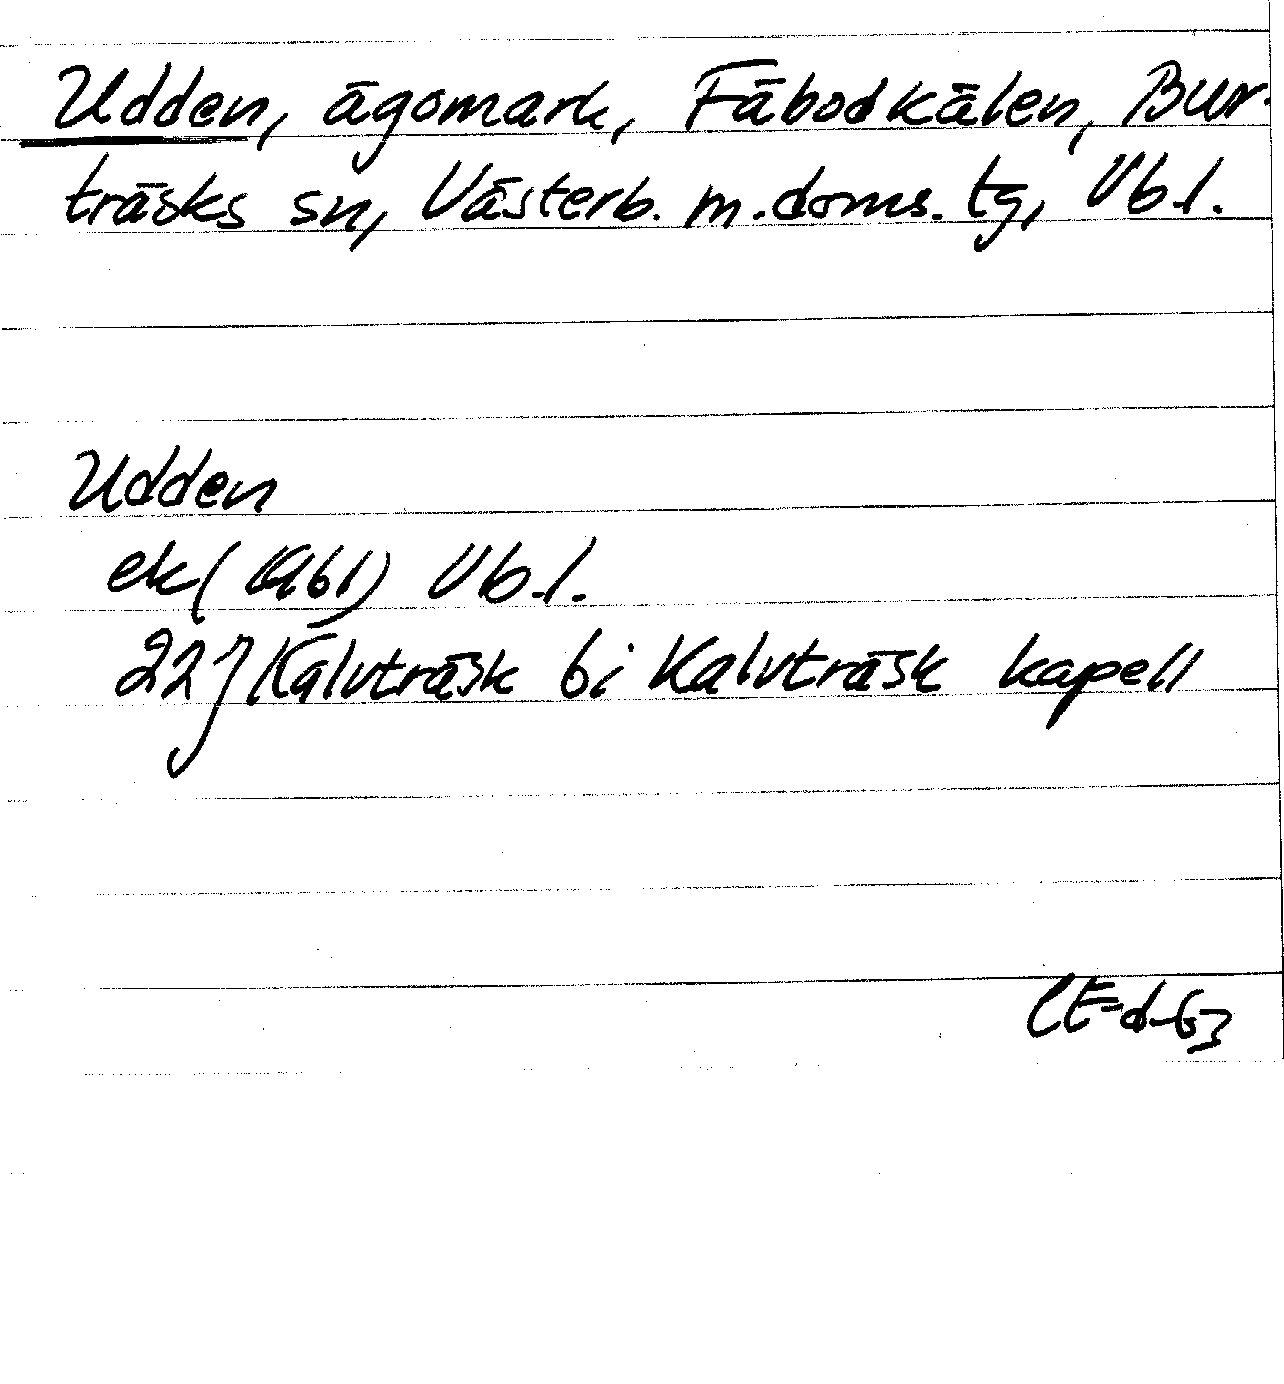 Udden, ägomark, Fäbodkälen, Bur-
träsks sn, Västerb. m. doms. tg, Vb.l.
Udden
ek (1961) Vb.l.
22 J Kalvträsk bi Kalvträsk kapell